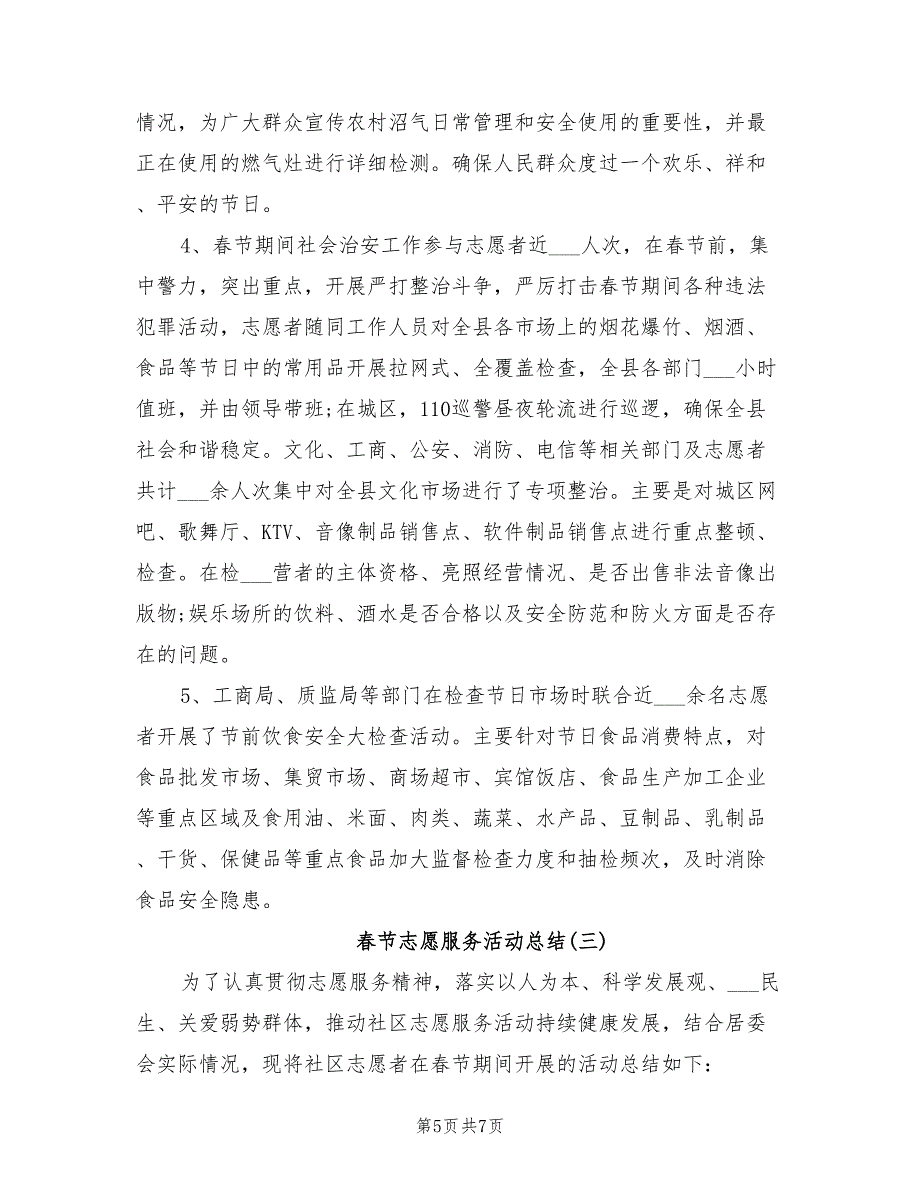 情况，为广大群众宣传农村沼气日常管理和安全使用的重要性，并最
正在使用的燃气灶进行详细检测。确保人民群众度过一个欢乐、祥和
、平安的节日。
4、春节期间社会治安工作参与志愿者近___人次，在春节前，集
中警力，突出重点，开展严打整治斗争，严厉打击春节期间各种违法
犯罪活动，志愿者随同工作人员对全县各市场上的烟花爆竹、烟酒、
食品等节日中的常用品开展拉网式、全覆盖检查，全县各部门___小时
值班，并由领导带班;在城区，110巡警昼夜轮流进行巡逻，确保全县
社会和谐稳定。文化、工商、公安、消防、电信等相关部门及志愿者
共计___余人次集中对全县文化市场进行了专项整治。主要是对城区网
吧、歌舞厅、KTV、音像制品销售点、软件制品销售点进行重点整顿、
检查。在检___营者的主体资格、亮照经营情况、是否出售非法音像出
版物;娱乐场所的饮料、酒水是否合格以及安全防范和防火方面是否存
在的问题。
5、工商局、质监局等部门在检查节日市场时联合近___余名志愿
者开展了节前饮食安全大检查活动。主要针对节日食品消费特点，对
食品批发市场、集贸市场、商场超市、宾馆饭店、食品生产加工企业
等重点区域及食用油、米面、肉类、蔬菜、水产品、豆制品、乳制品
、干货、保健品等重点食品加大监督检查力度和抽检频次，及时消除
食品安全隐患。
春节志愿服务活动总结(三)
为了认真贯彻志愿服务精神，落实以人为本、科学发展观、___民
生、关爱弱势群体，推动社区志愿服务活动持续健康发展，结合居委
会实际情况，现将社区志愿者在春节期间开展的活动总结如下：
第5页共7页